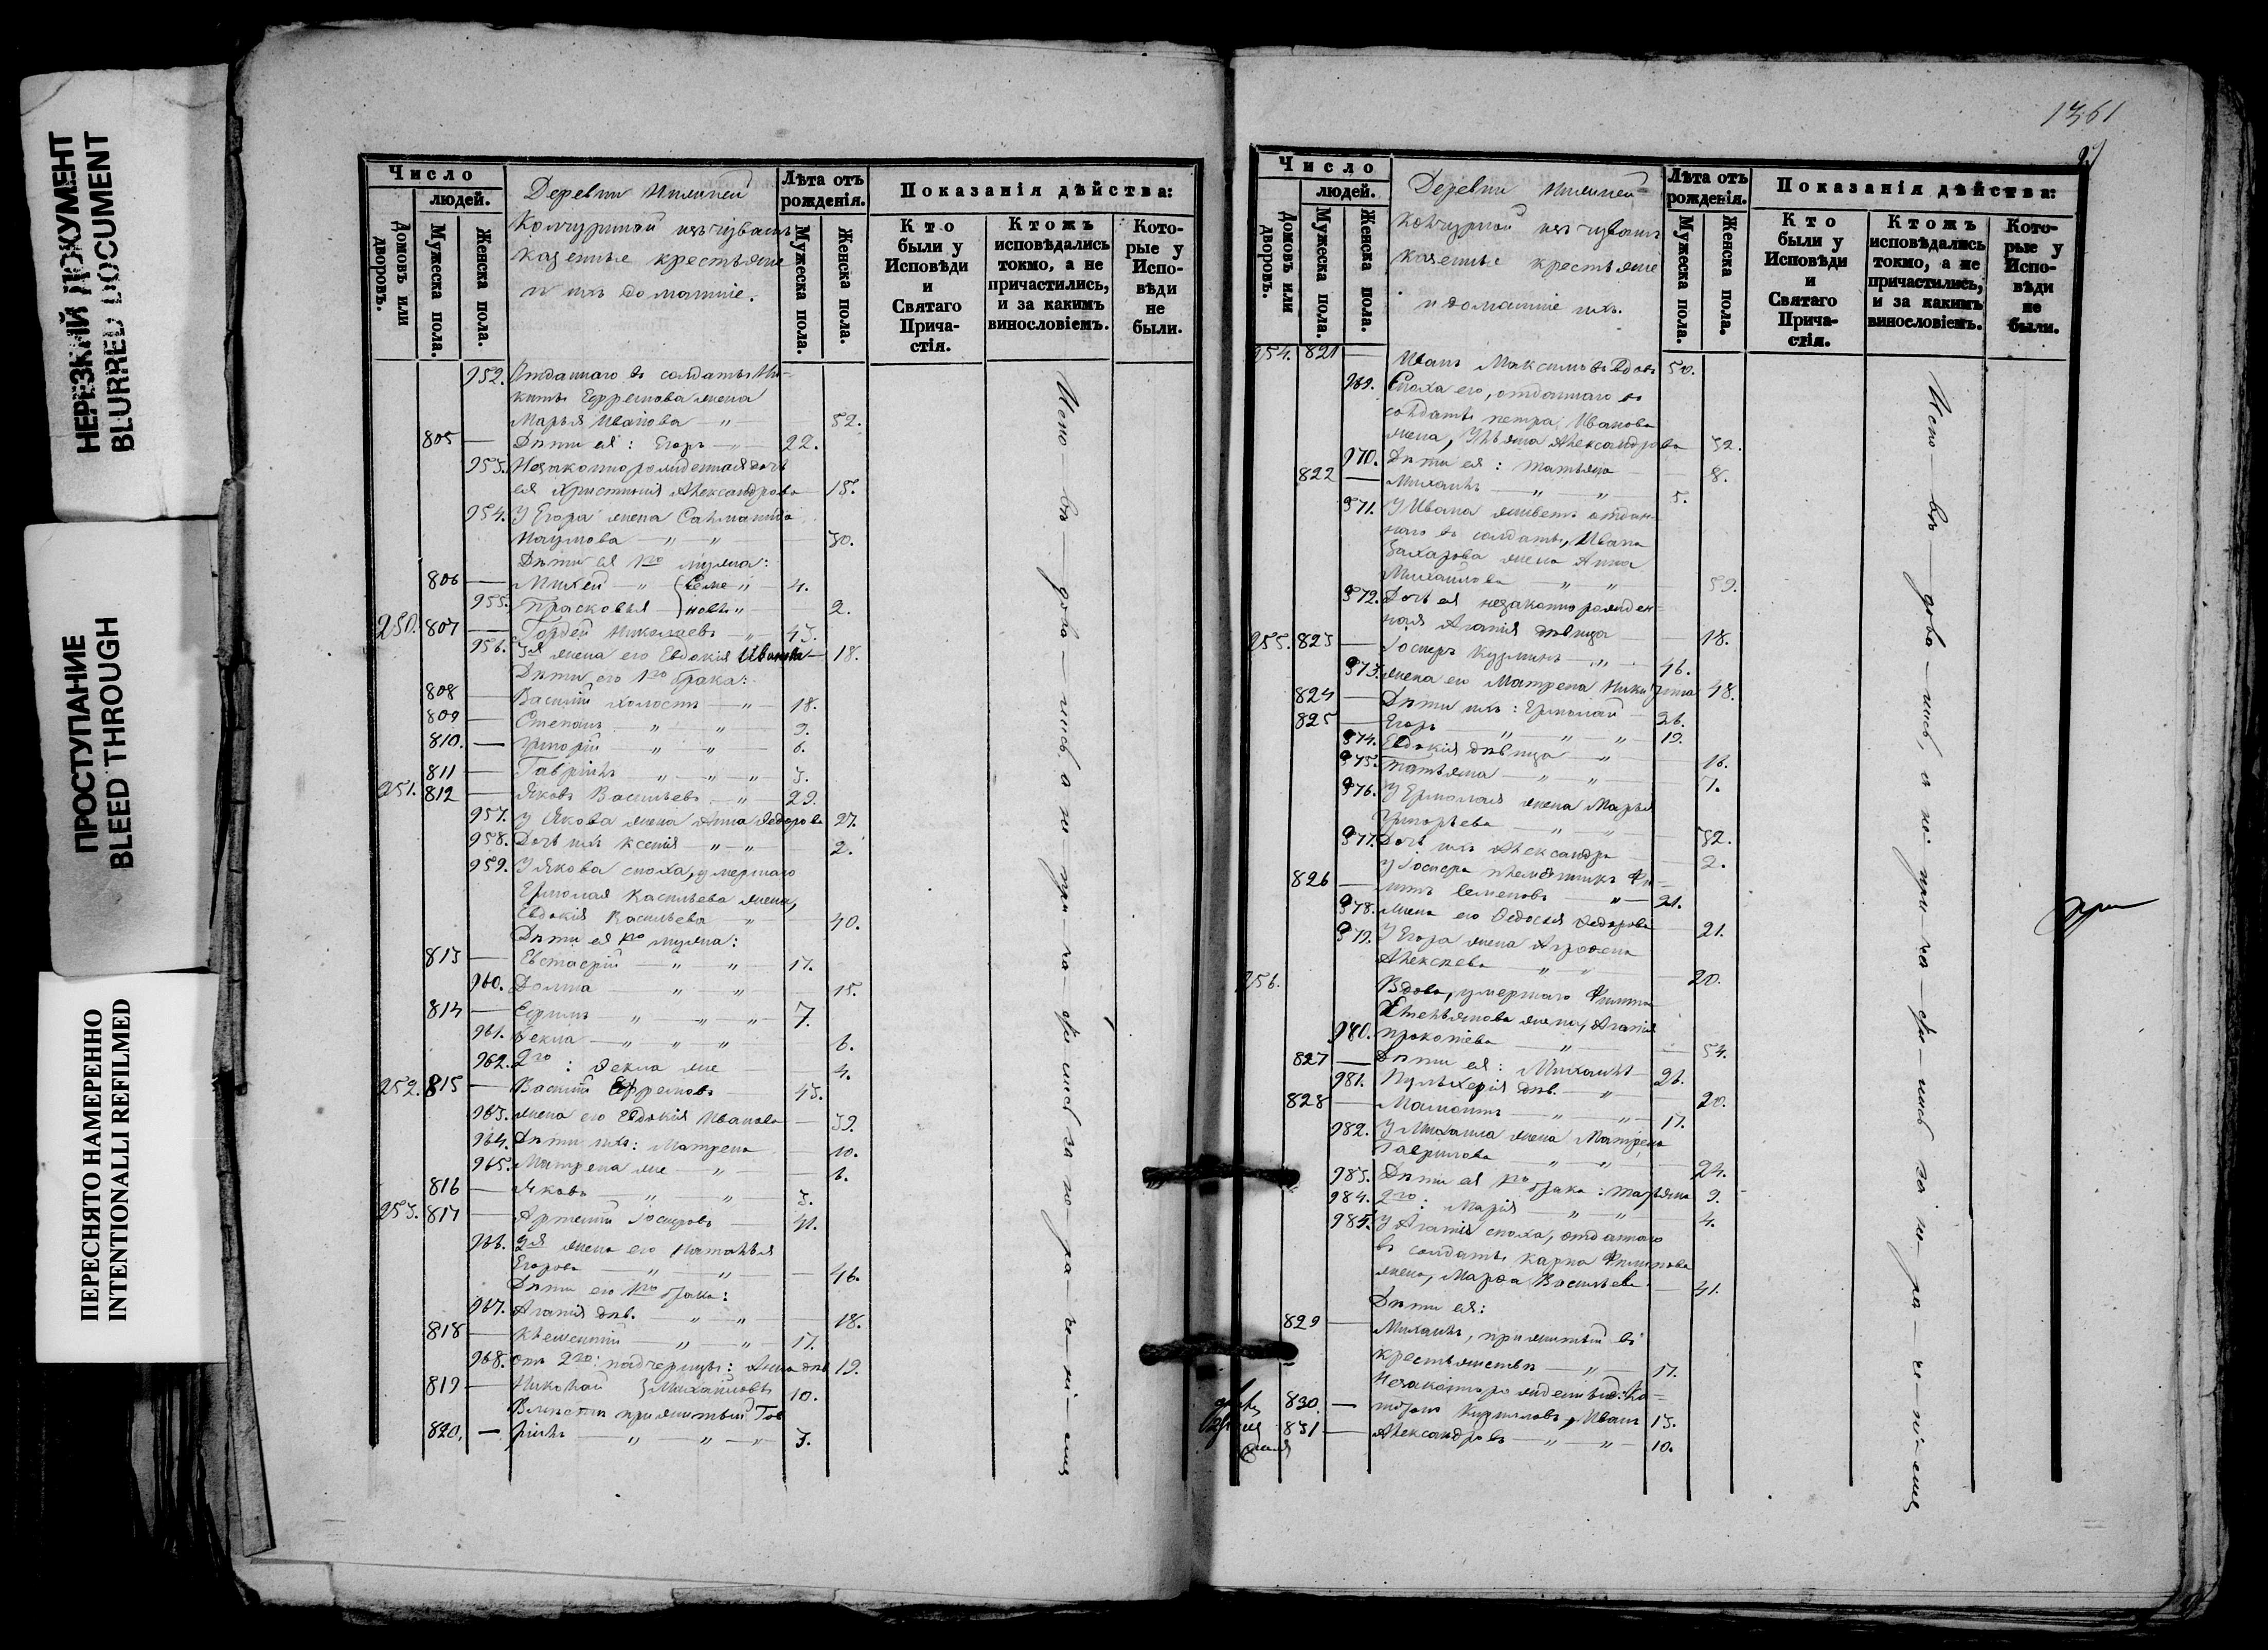 НЕРЕЗКИЙ ДОКУМЕНТ
BLURRED DOCUMENT
ПРОСТУПАНИЕ
BLEED THROUGH
ПЕРЕСНЯТО НАМЕРЕННО
INTENTIONALLI REFILMED
Число
людей.
Домовъ или дворовъ.
Мужеска пола.
Женска пола.
Деревни
из чувашъ
казенные крестьяне
и ихъ домашніе.
Лѣта отъ рожденія.
Мужеска пола.
Женска пола.
Показанія дѣйства:
Кто были у Исповѣди и Святаго Прича-стія.
Ктожъ исповѣдались токмо, а не причастились, и за какимъ винословіемъ.
Кото-рые у Испо-вѣди не были.
952. Отданнаго въ солдаты Ни-
киты Ефремова жена
Марья Иванова — „ — 52.
805 — Дѣти ея: Егоръ — „ — 22.
953. Незаконнорожденная дочь
ея Христинія Александрова — 15.
954. У Егора жена Саломанида
Наумова — „ — „ — 30.
Дѣти ея 1го мужа:
806 — Михей — „ — Семе „ — 4.
955. Прасковья — новы „ — 2.
250. 807 — Гордей Николаевъ — „ — 43.
956. 3я жена его Евдокія Иванова — 18.
Дѣти его 1го брака:
808 — Василій холостъ — „ — 18.
809 — Степанъ — „ — „ — 9.
810. — Григорій — „ — „ — 6.
811 — Гаврилъ — „ — „ — „ — 3.
251. 812 — Яковъ Васильевъ — „ — 29.
957. У Якова жена Анна Ѳедорова 27.
958. Дочь ихъ Ксенія — „ — „ — 2.
959. У Якова сноха, умершаго
Ермолая Васильева жена,
Евдокія Васильева — „ — 40.
Дѣти ея 1го мужа:
813 — Евстафій — „ — „ — 17.
960. Домна — „ — „ — 15.
814 — Ефимъ — „ — „ — „ — 7.
961. Ѳекла — „ — „ — „ — 6.
962. 2го: Ѳекла же — 4.
252. 815 — Василій Ефремовъ — 43.
963. жена его Евдокія Иванова — 39.
964. Дѣти ихъ: Матрена — 10.
965. Матрена же — „ — 6.
816 — Яковъ — „ — „ — 3.
253. 817 — Артемій Іосифовъ — 41.
966. 2я жена его Наталья
Егорова — „ — „ — 46.
Дѣти его 1го брака:
967. Агапія дѣв. — „ — „ — 18.
818 — Климентій — „ — „ — 17.
968. отъ 2го: падчерицы: Анна дѣв 19.
819 — Николай } Михайловы 10.
Вмѣстѣ прижитый Гав
820. — рилъ — „ — „ — „ — 3.
Испо — вѣ — дова — лись, а не — при — ча — сти — лись за не — ра — че — ні — емъ
1361
Число
людей.
Домовъ или дворовъ.
Мужеска пола.
Женска пола.
Деревни
из чувашъ
казенные крестьяне
и домашніе ихъ.
Лѣта отъ рожденія.
Мужеска пола.
Женска пола.
Показанія дѣйства:
Кто были у Исповѣди и Святаго Прича-стія.
Ктожъ исповѣдались токмо, а не причастились, и за какимъ винословіемъ.
Кото-рые у Испо-вѣди не были.
254. 821 — Иванъ Максимовъ вдовъ 50.
969. Сноха его, отданнаго въ
солдаты Петра Иванова
жена, Ульяна Александрова 32.
970. Дѣти ея: Татьяна — 8.
822 — Михаилъ — „ — „ — 5.
971. У Ивана живетъ отдан-
наго въ солдаты, Ивана
Захарова жена Анна
Михайлова — „ — „ — 59.
972. Дочь ея незаконнорожден-
ная Агапія дѣвица — 18.
255. 823 — Іосифъ Кузминъ — „ — 46.
973. жена его Матрена Никитина 48.
824 — Дѣти ихъ: Ермолай — 26.
825 — Егоръ — „ — „ — „ — 19.
974. Евдокія дѣвица — „ — 16.
975. Татьяна — „ — „ — 7.
976. У Ермолая жена Марья
Григорьева — „ — „ — 32.
977. Дочь ихъ Александра — 2.
У Іосифа племянникъ Фи-
826 — липъ Семеновъ — „ — 21.
978. жена его Ѳедосья Ѳедорова — 21.
979. У Егора жена Агрофена
Алексѣева — „ — „ — 20.
256. Вдова, умершаго Филипа
Емельянова жена, Агапія
980. Прокопіева — „ — 54.
827 — Дѣти ея: Михаилъ — 26.
981. Пульхерія дѣв. — „ — 20.
828 — Мамонтъ — „ — „ — 17.
982. У Михаила жена Матрена
Гаврилова — „ — „ — 24.
983. Дѣти ея 1го брака: Татьяна 9.
984. 2го: Марія — „ — „ — 4.
985. У Агапіи сноха, отданнаго
въ солдаты Карпа Филипова
жена, Марѳа Васильева — 41.
Дѣти ея:
829 — Михаилъ, прижитый въ
крестьянствѣ — „ — 17.
830. — Кириловъ, Иванъ 13.
831 — Александровъ — „ — „ — 10.
Испо — вѣ — дова — лись, а не — при — ча — сти — лись за не — ра — че — ні — емъ